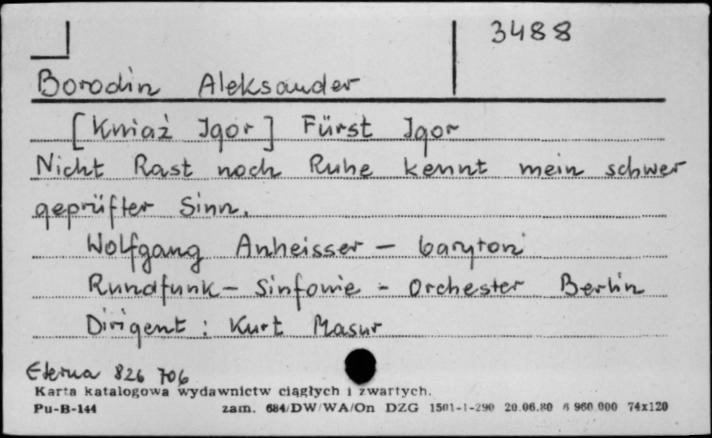 3488
Borodin Aleksander
[Kniaź Igor] Fürst Igor
Nicht Rast noch Ruhe kennt mein schwer
geprüfter Sinn.
Wolfgang Anheisser – baryton
Rundfunk – Sinfonie – Orchester Berlin
Dirigent : Kurt Masur
Eterna 826 706
Karta katalogowa wydawnictw ciągłych i zwartych.
Pu-B-144 zam. 684/DW/WA/On DZG 1501-1-290 20.06.80 6 960 000 74x120